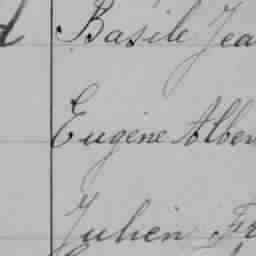 Basile Jea
Eugène Alber
Julien Fr